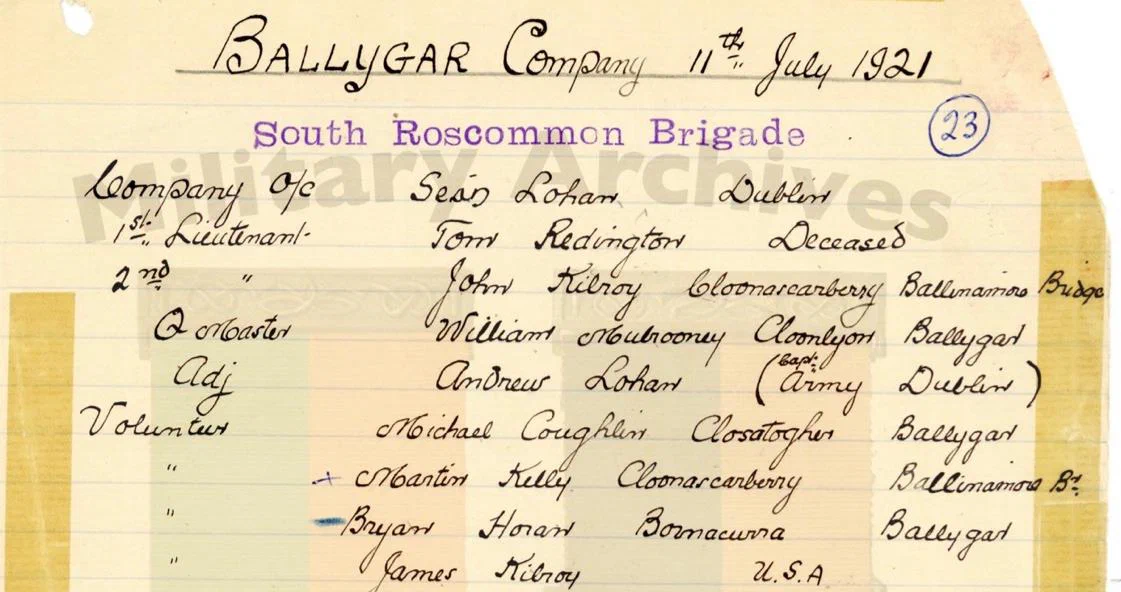 BALLYGAR Company 11th July 1921
South Roscommon Brigade
23
Military Archives
Company O/C Seán Lohan Dublin
1st Lieutenant Tom Redington Deceased
2nd " John Kilroy Cloonascarberry Ballinamore Bridge
Q Master William Mulrooney Cloonlyon Ballygar
Adj Andrew Lohan (Capt. Army Dublin)
Volunteer Michael Coughlin Closatogher Ballygar
" + Martin Kelly Cloonascarberry Ballinamore Br.
" Bryan Horan Bornacurra Ballygar
" James Kilroy U.S.A